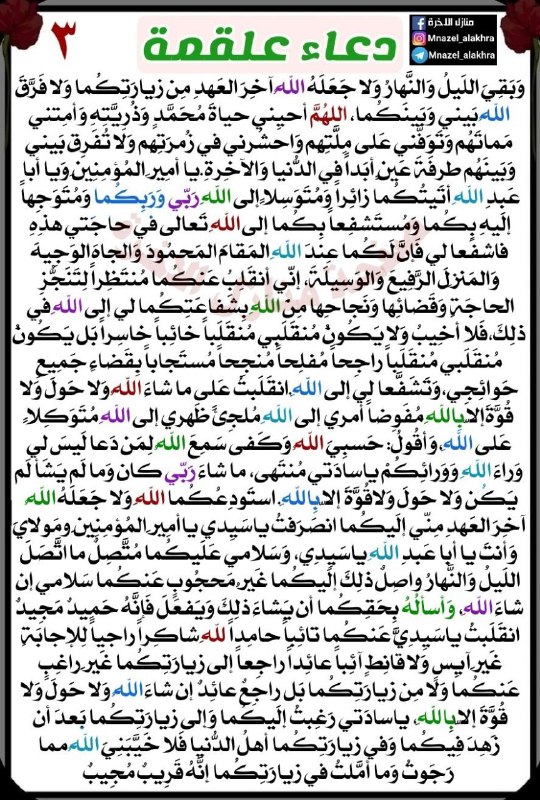 منازل الآخرة
Mnazel_alakhra
Mnazel_alakhra
دعاء علقمة
٣
وَبَقِيَ اللَيلُ وَالنَّهارُ وَلا جَعَلَهُ اللهُ آخرَ العَهدِ مِن زيارَتِكُما وَلا فَرَّقَ
اللهُ بَيني وَبَينَكُما، اللهُمَّ أحيِني حياةَ مُحَمَّدٍ وَذُرِيَّتِهِ وَأمِتني
مَماتَهُم وَتَوَفَّني عَلى مِلَّتِهِم وَاحشُرني في زُمرَتِهِم وَلا تُفَرِق بَيني
وَبَينَهُم طَرفَةَ عَينٍ أبَداً في الدُّنيا وَالآخرةِ. يا أميرِ المُؤمِنِينَ وَيا أبا
عَبدِ اللهِ أتَيتُكُما زائراً وَمُتَوَسِلاً إلى اللهِ رَبّي وَرَبِكُما وَمُتَوَجِهاً
إلَيهِ بِكُما وَمُستَشفعاً بِكُما إلى اللهِ تَعالى في حاجَتي هذِهِ
فاشفَعا لي فَإنَّ لَكُما عِندَ اللهِ المَقامَ المَحمُودَ وَالجاهَ الوَجيهَ
وَالمَنزِلَ الرَّفيعَ وَالوَسِيلَةَ، إنّي أنقَلِبُ عَنكُما مُنتَظِراً لِتَنَجُّزِ
الحاجَةِ وَقَضائها وَنَجاحِها مِنَ اللهِ بِشَفاعَتِكُما لي إلى اللهِ في
ذلِكَ، فَلا أخيبُ وَلا يَكُونُ مُنقَلَبي مُنقَلَباً خائِباً خاسِراً بَل يَكُونُ
مُنقَلَبي مُنقَلَباً راجحاً مُفلِحاً مُنجحاً مُستَجاباً بِقَضاءِ جَميعِ
حَوائِجي، وَتَشَفَّعا لي إلى اللهِ. انقَلَبتُ عَلى ما شاءَ اللهُ وَلا حَولَ وَلا
قُوَّةَ إلا بِاللهِ مُفَوِضاً أمري إلى اللهِ مُلجِئً ظَهري إلى اللهِ مُتَوَكِلاً
عَلى اللهِ، وَأقُولُ: حَسبيَ اللهُ وَكَفى سَمِعَ اللهُ لِمَن دَعا لَيسَ لي
وَراءَ اللهِ وَوَرائِكُمْ يا سادَتي مُنتَهى، ما شاءَ رَبّي كان وَما لَم يَشَأ لَم
يَكُن وَلا حَولَ وَلا قُوَّةَ إلا بِاللهِ، استَودِعُكُما اللهُ وَلا جَعَلَهُ اللهُ
آخرَ العَهدِ مِنّي إلَيكُما انصَرَفتُ يا سَيِدي يا أميرِ المُؤمِنِينَ وَمَولايَ
وَأنتَ يا أبا عَبدِ اللهِ يا سَيِدي، وَسَلامي عَلَيكُما مُتَّصِلٌ ما اتَّصَلَ
اللَيلُ وَالنَّهارُ واصِلٌ ذلِكَ إلَيكُما غَيرِ مَحجُوبٍ عَنكُما سَلامي إن
شاءَ اللهُ، وَأسألُهُ بِحَقِكُما أن يَشاءَ ذلكَ وَيَفعَلَ فَإنَّهُ حَميدٌ مَجيدٌ
انقَلَبتُ يا سَيِديَّ عَنكُما تائِباً حامِداً للهِ شاكِراً راجياً لِلإجابَةِ
غَيرَ آيِسٍ وَلا قانِطٍ آئِباً عائِداً راجعاً إلى زيارَتِكُما غَيرَ راغِبٍ
عَنكُما وَلا مِن زيارَتِكُما بَل راجعٌ عائِدٌ إن شاءَ اللهُ وَلا حَولَ وَلا
قُوَّةَ إلا بِاللهِ، يا سادَتي رَغِبتُ إلَيكُما وَإلى زيارَتِكُما بَعدَ أن
زَهِدَ فيكُما وَفي زيارَتِكُما أهلُ الدُّنيا فَلا خَيَّبَنيَ اللهُ مما
رَجَوتُ وَما أمَّلتُ في زيارَتِكُما إنَّهُ قَريبٌ مُجيبٌ